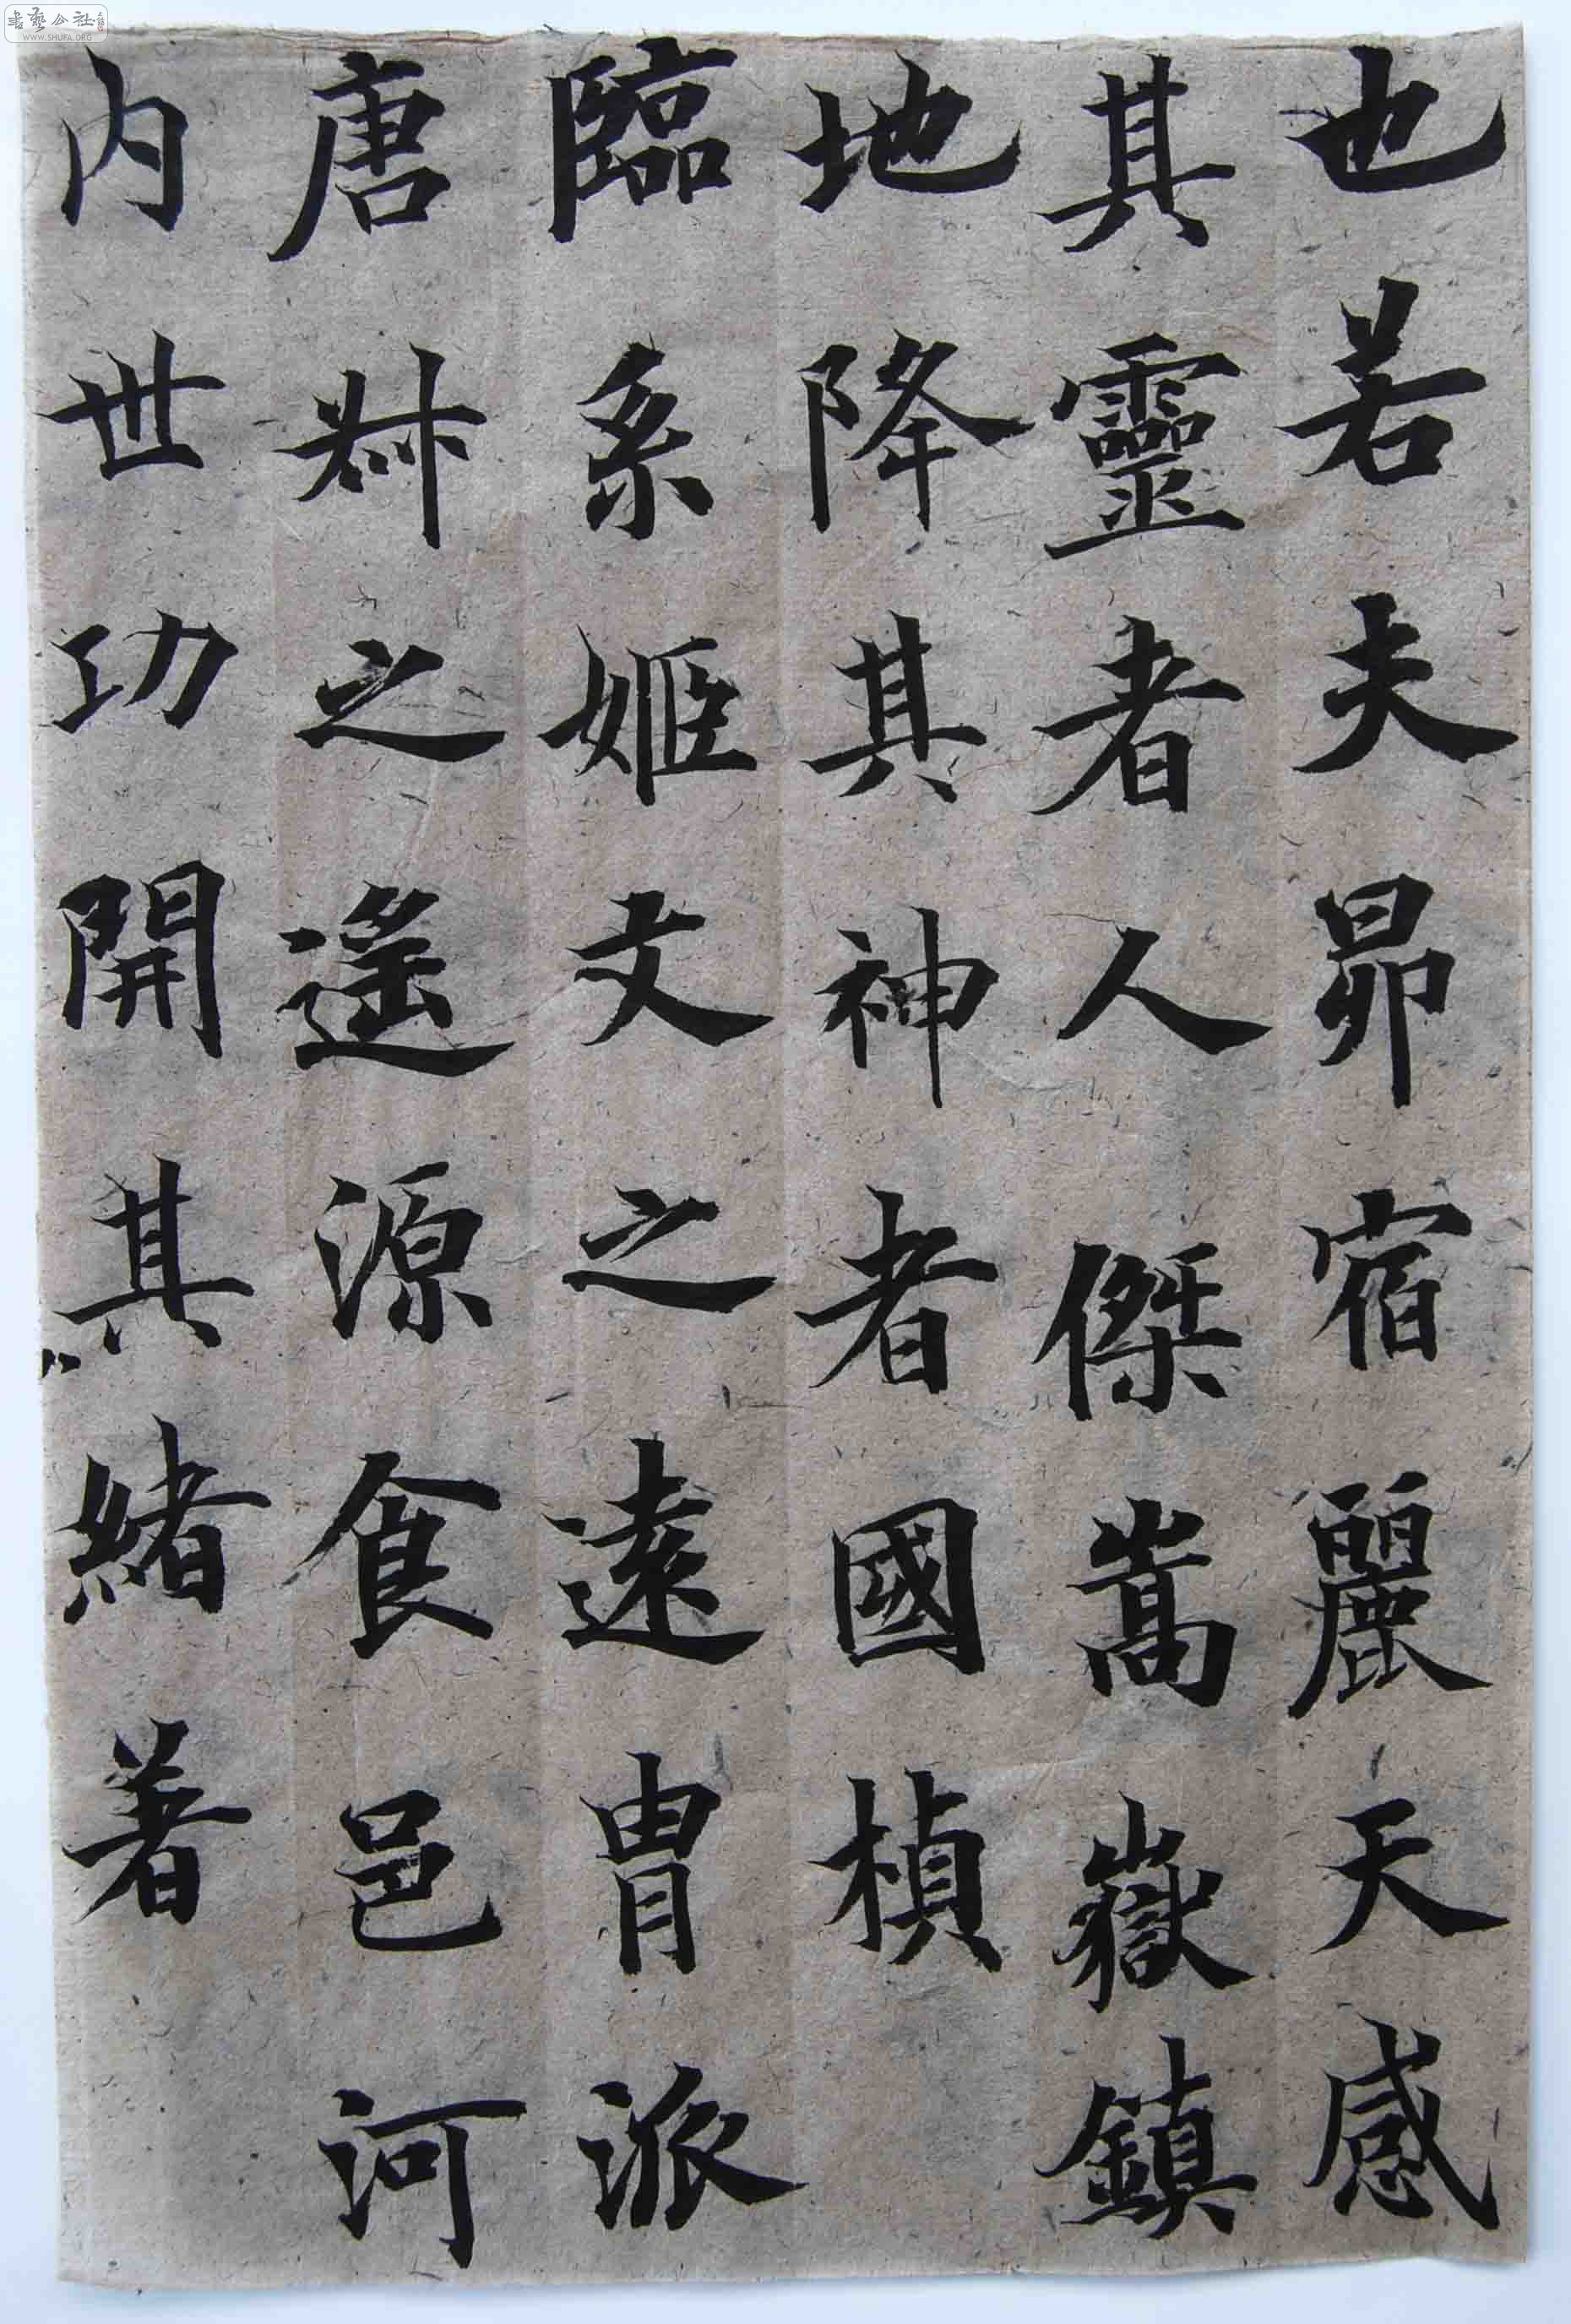 也若夫昴宿麗天感
其靈者人傑嵩嶽鎮
地降其神者國楨
臨系姬文之遠胄派
唐叔之遙源食邑河
內世功開其緒著
書藝公社
WWW.SHUFA.ORG